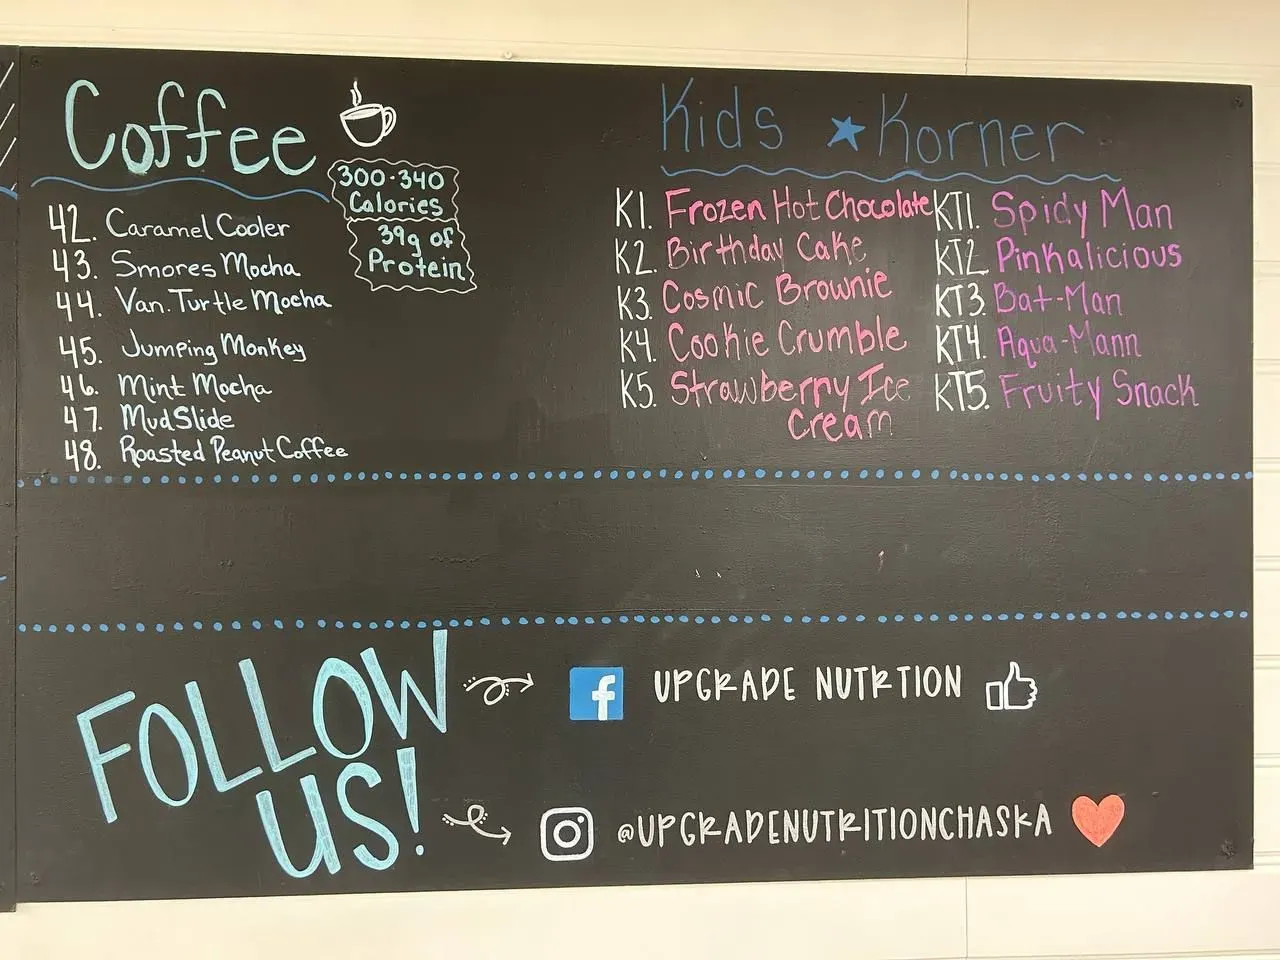 Coffee
300-340
Calories
39g of
Protein
42. Caramel Cooler
43. Smores Mocha
44. Van. Turtle Mocha
45. Jumping Monkey
46. Mint Mocha
47. MudSlide
48. Roasted Peanut Coffee
Kids Korner
K1. Frozen Hot Chocolate
K2. Birthday Cake
K3. Cosmic Brownie
K4. Cookie Crumble
K5. Strawberry Ice
Cream
KT1. Spidy Man
KT2. Pinkalicious
KT3. Bat-Man
KT4. Aqua-Mann
KT5. Fruity Snack
FOLLOW
US!
f UPGRADE NUTRTION
@UPGRADENUTRITIONCHASKA